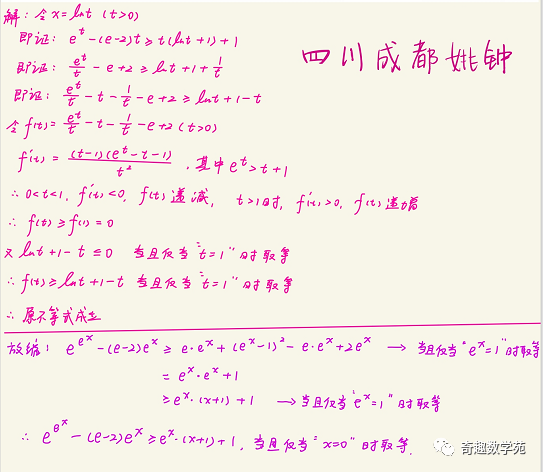 解：令 x=lnt (t>0)
四川成都姚钟
即证：e^t-(e-2)t≥t(lnt+1)+1
即证：e^t/t-e+2≥lnt+1+1/t
即证：e^t/t-t-1/t-e+2≥lnt+1-t
令 f(t)=e^t/t-t-1/t-e+2 (t>0)
f'(t)=(t-1)(e^t-t-1)/t^2 ，其中 e^t>t+1
∴ 0<t<1，f'(t)<0，f(t)递减，t>1时，f'(t)>0，f(t)递增
∴ f(t)≥f(1)=0
又 lnt+1-t≤0 当且仅当“t=1”时取等
∴ f(t)≥lnt+1-t 当且仅当“t=1”时取等
∴ 原不等式成立
放缩：e^{e^x}-(e-2)e^x≥e·e^x+(e^x-1)^2-e·e^x+2e^x → 当且仅当“e^x=1”时取等
=e^x·e^x+1
≥e^x·(x+1)+1 → 当且仅当“e^x=1”时取等
∴ e^{e^x}-(e-2)e^x≥e^x·(x+1)+1，当且仅当“x=0”时取等.
奇趣数学苑